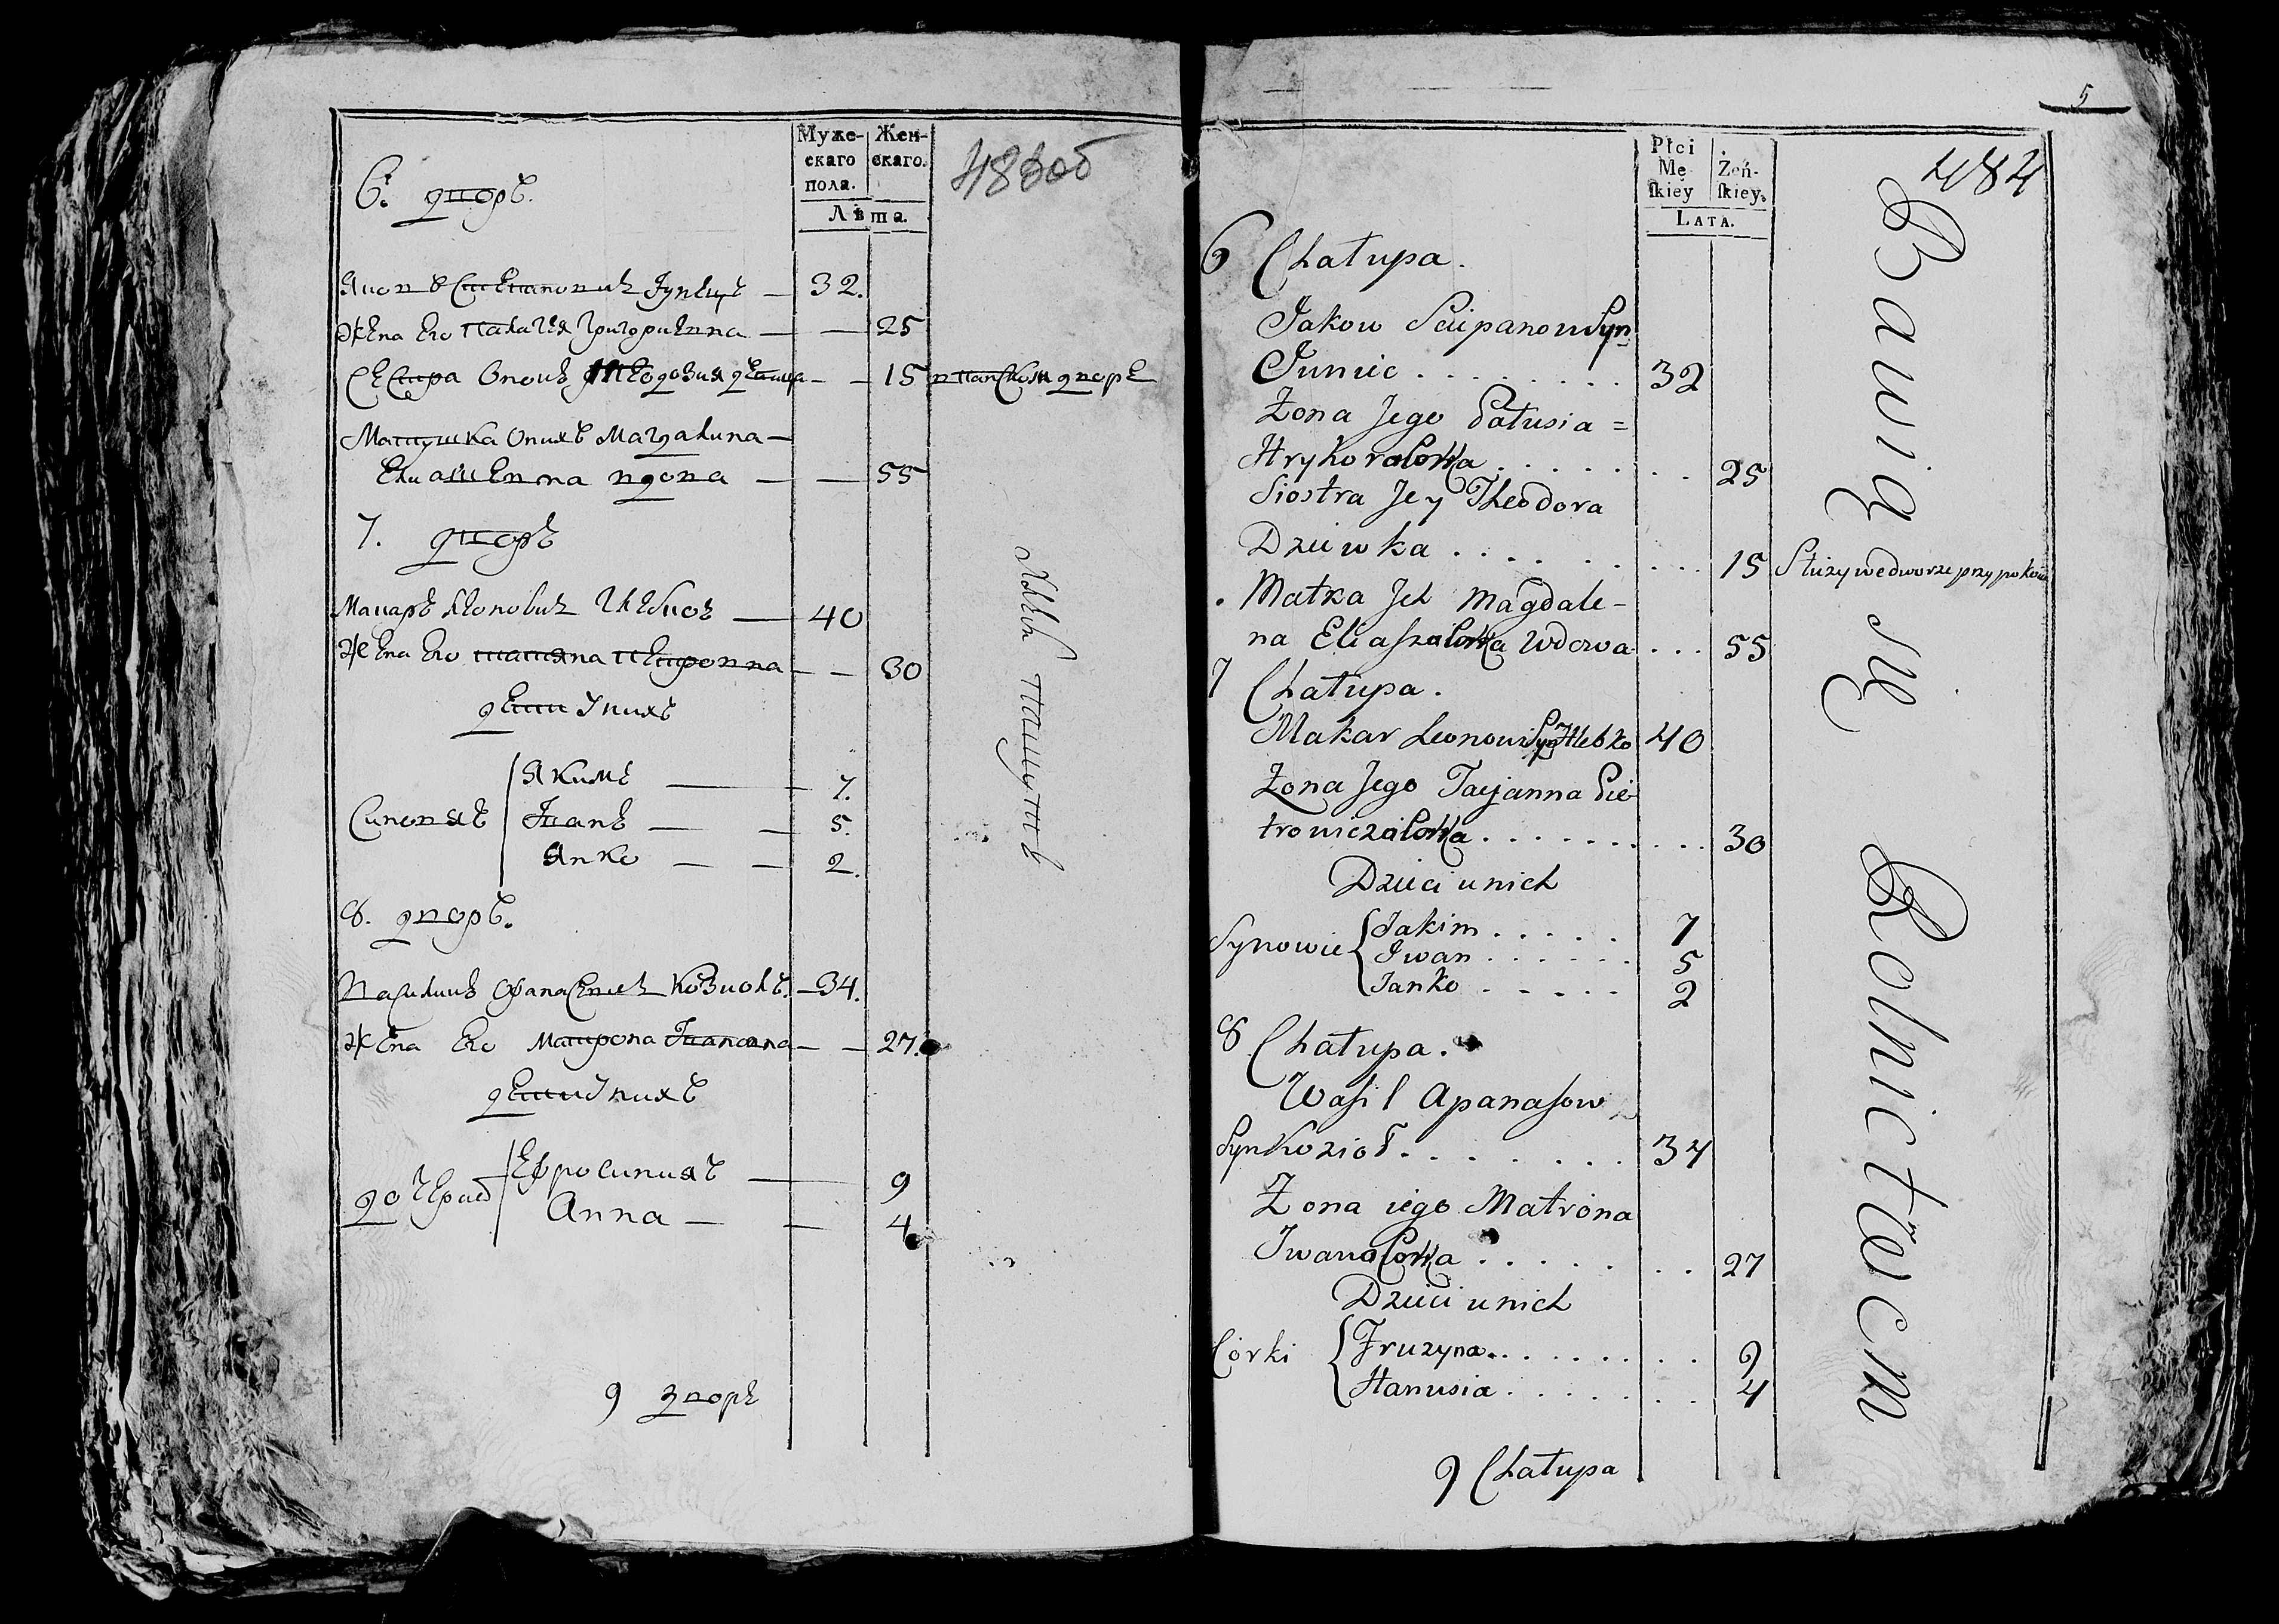 Муже-
скаго
пола.
Жен-
скаго.
Лѣта.
483об
6. дворъ.
Яковъ Степановичъ Гунецъ — 32.
Жена Его Палагея Григориевна — — 25
Сестра Оновъ Феодозия девица — — 15 в панском дворе
Матушка Онихъ Магдалина —
Елиашевна вдова — — 55
7. дворъ
Макаръ Леоновичъ Глебко — 40
Жена Его Татияна Петровна — — 30
дети Унихъ
Синовяъ
Якимъ — 7.
Иванъ — — 5.
Янко — — 2.
8. дворъ.
Василий Афанасевичъ Козиолъ. — 34.
Жена Его Матрона Ивановна — — 27.
дети Унихъ
дочери
Ефросинияъ — 9
Анна — — 4
9 дворъ
5
484
Płci
Mę
ſkiey
Żeń-
ſkiey.
Lata.
6 Chałupa.
Jakow Sciepanow Syn
Huniec . . . . . . . . 32
Żona Jego Pałusia =
Hrykora Corka . . . . . . . 25
Siostra Jey Theodora
Dziewka . . . . . . . . 15 Służy we dworze przy pokoiu
Matka Jch Magdale-
na Eliaſza Corka Wdowa . . . 55
7 Chałupa.
Makar Leonow Syn Hlebko 40
Żona Jego Tacjanna Pie-
trowicza Corka . . . . . . . . . 30
Dzieci u nich
Synowie
Jakim . . . . . 7
Jwan . . . . . . 5
Janko . . . . . 2
8 Chałupa.
Waſil Apanaſow
Syn Kozioł . . . . . . . 34
Żona iego Matrona
Jwana Corka . . . . . . . 27
Dzieci u nich
Corki
Fruzyna . . . . . . . . 9
Hanusia . . . . . . . 4
9 Chałupa
Bawią się Rolnictwem